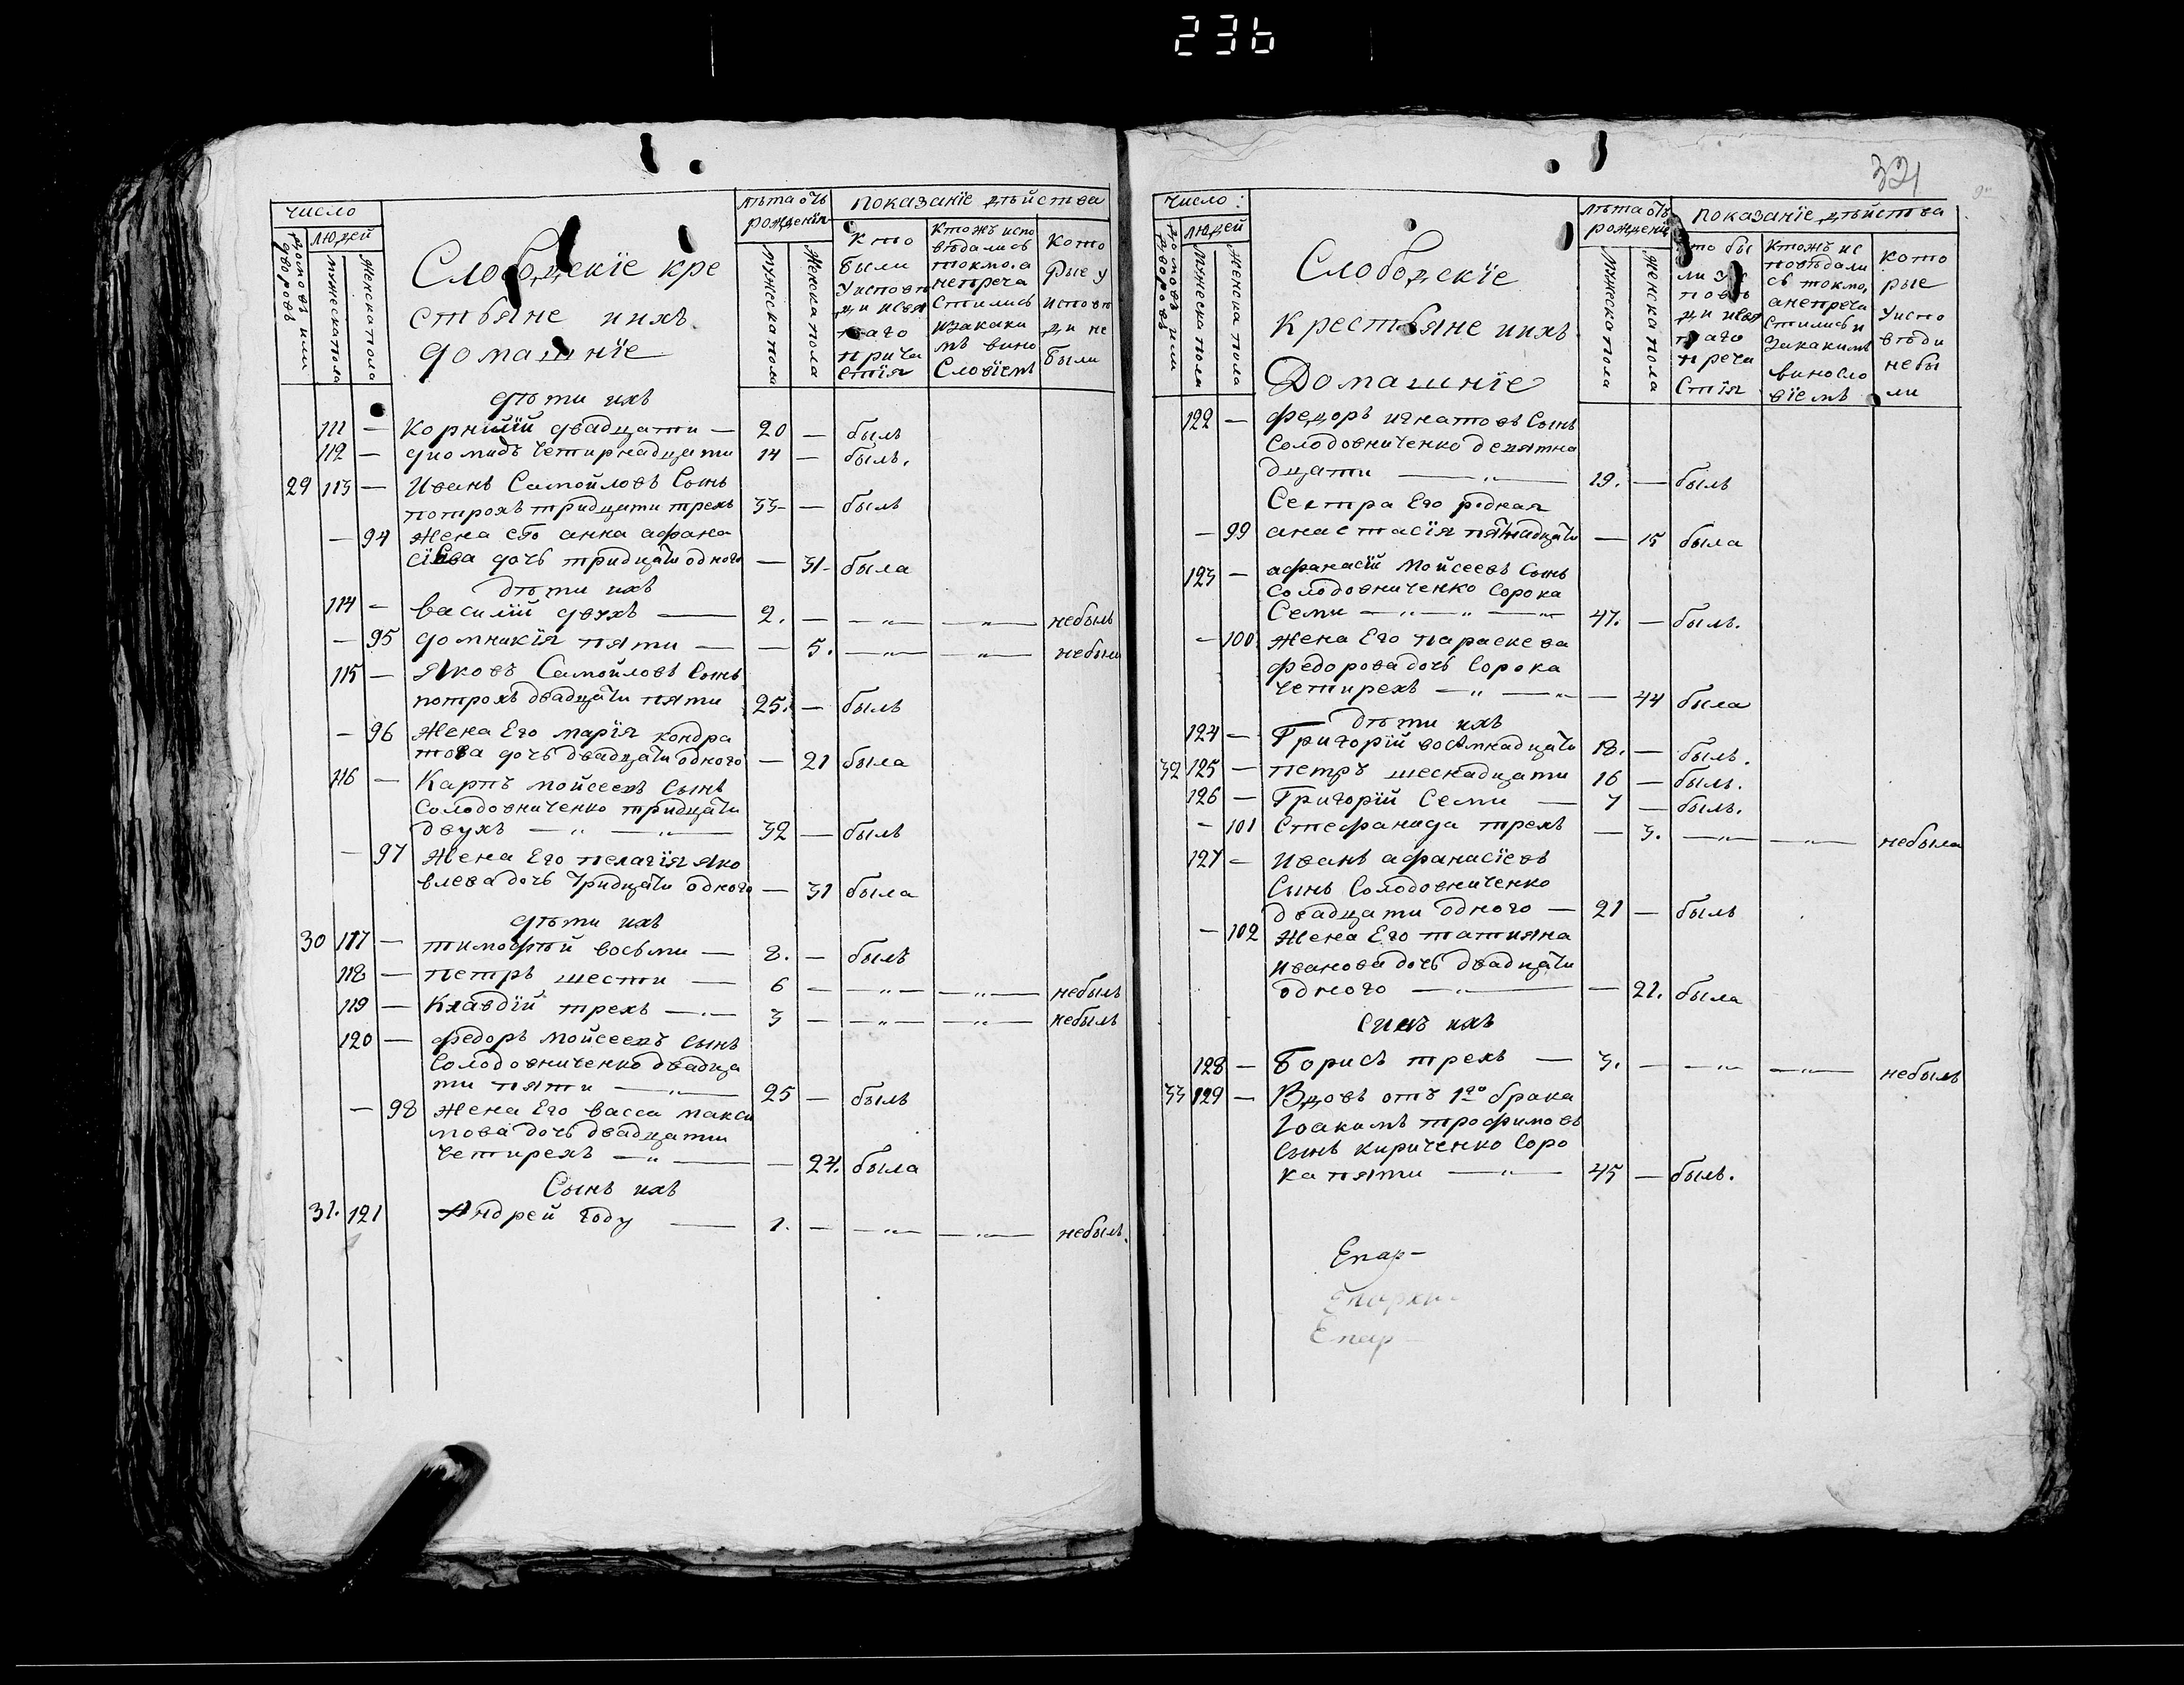 236
число
людей
домовъ или дворовъ
мужеска пола
женска пола
Слободскіе кре
стьяне ихъ
домашніе
лѣта отъ
рожденія
мужеска пола
женска пола
показаніе дѣйства
Кто
были
у исповѣ
ди и свя
таго
прича
стія
Ктожъ испо
вѣдались
токмо, а
непреча
стились
изакаки
мъ вино
Словіемъ
Кото
рые у
исповѣ
ди не
были
дѣти ихъ
111 — Корнилій двадцати — 20 — былъ
112 — диомидъ четирнадцати 14 — былъ.
29 113 — Иванъ Самойловъ Сынъ
потрохъ тридцати трехъ 33 — былъ
— 94 Жена его анна афана
сіева дочь тридцати одного — 31 — была
дѣти ихъ
114 — василій двухъ — 2. — — „ — — „ — небылъ
— 95 домникія пяти — — 5. — „ — — „ — небыла
115 — Яковъ Самойловъ Сынъ
потрохъ двадцати пяти 25. — былъ
— 96 Жена Его марія кондра
това дочь двадцати одного — 21 была
116 — Карпъ мойсеевъ Сынъ
Солодовниченко тридцати
двухъ — „ — „ — 32 — былъ
— 97 Жена Его пелагія яко
влева дочь тридцати одного — 31 была
дѣти ихъ
30 117 — тимофѣй восьми — 8. — былъ
118 — петръ шести — 6 — — „ — — „ — небылъ
119 — Клавдій трехъ — „ — 3 — — „ — — „ — небылъ
120 — федоръ мойсеевъ сынъ
Солодовниченко двадца
ти пяти — „ — 25 — былъ
— 98 Жена Его васса макси
мова дочь двадцати
четирехъ — „ — — 24. была
Сынъ ихъ
31. 121 Андрей году — 1. — — „ — — „ — небылъ.
321
число:
людей
домовъ или дворовъ
мужеска пола
женска пола
Слободскіе
крестьяне ихъ
Домашніе
лѣта отъ
рожденія
мужеска пола
женска пола
показаніе дѣйства
кто бы
ли у ис
повѣ
ди и свя
таго
преча
Стія
Ктожъ ис
повѣдали
сь токмо,
анепреча
стились и
закакимъ
виносло
віемъ
кото
рые
у испо
вѣди
небы
ли
122 — федоръ игнатовъ Сынъ
Солодовниченко девятна
дцати — „ — 19. — былъ
Сестра Его родная
— 99 анастасія пятнадцати — 15 была
123 — афанасій Мойсеевъ Сынъ
Солодовниченко сорока
Семи — „ — „ — „ 47. — былъ.
— 100. Жена Его параскева
федорова дочь Сорока
четирехъ — „ — „ — 44 была
дѣти ихъ
124 — Григорій восемнадцати 18. — былъ.
32 125 — петръ шеснадцати 16 — былъ.
126 — Григорій Семи — 7 — былъ.
— 101 Стефанида трехъ — 3. — „ — — „ — небыла
127 — Иванъ афанасіевъ
Сынъ Солодовниченко
двадцати одного — 21 — былъ
— 102 Жена Его татияна
иванова дочь двадцати
одного — „ — — 21. была
синъ ихъ
128 — Борисъ трехъ — 3. — — „ — — „ — небылъ
33 129 — Вдовъ отъ 1го брака
Іоакимъ трофимовъ
сынъ кириченко соро
ка пяти — „ — 45 — былъ.
Епар-
Епархи
Епар